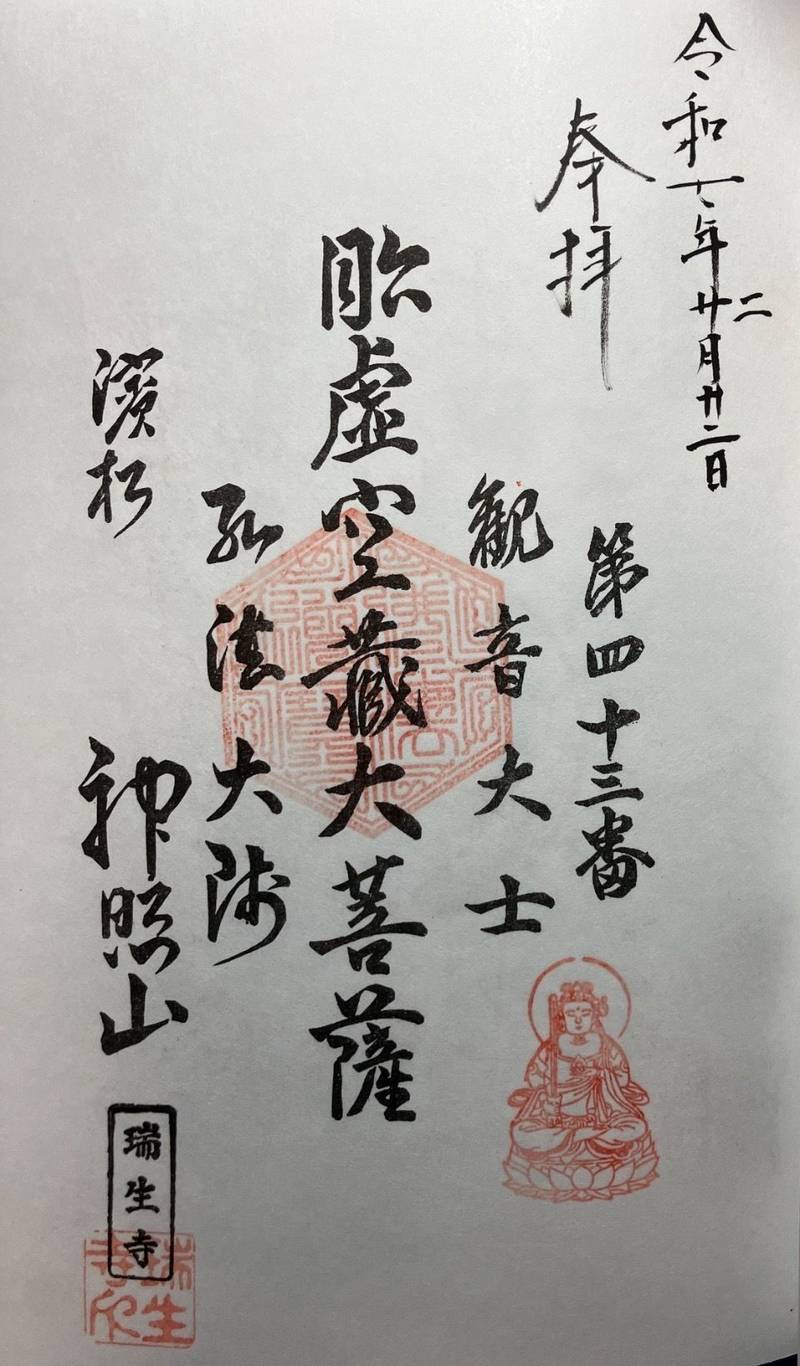 令和七年廿二月廿二日
奉拝
第四十三番
観音大士
虚空蔵大菩薩
弘法大師
濱松
神照山
瑞生寺
瑞生寺印